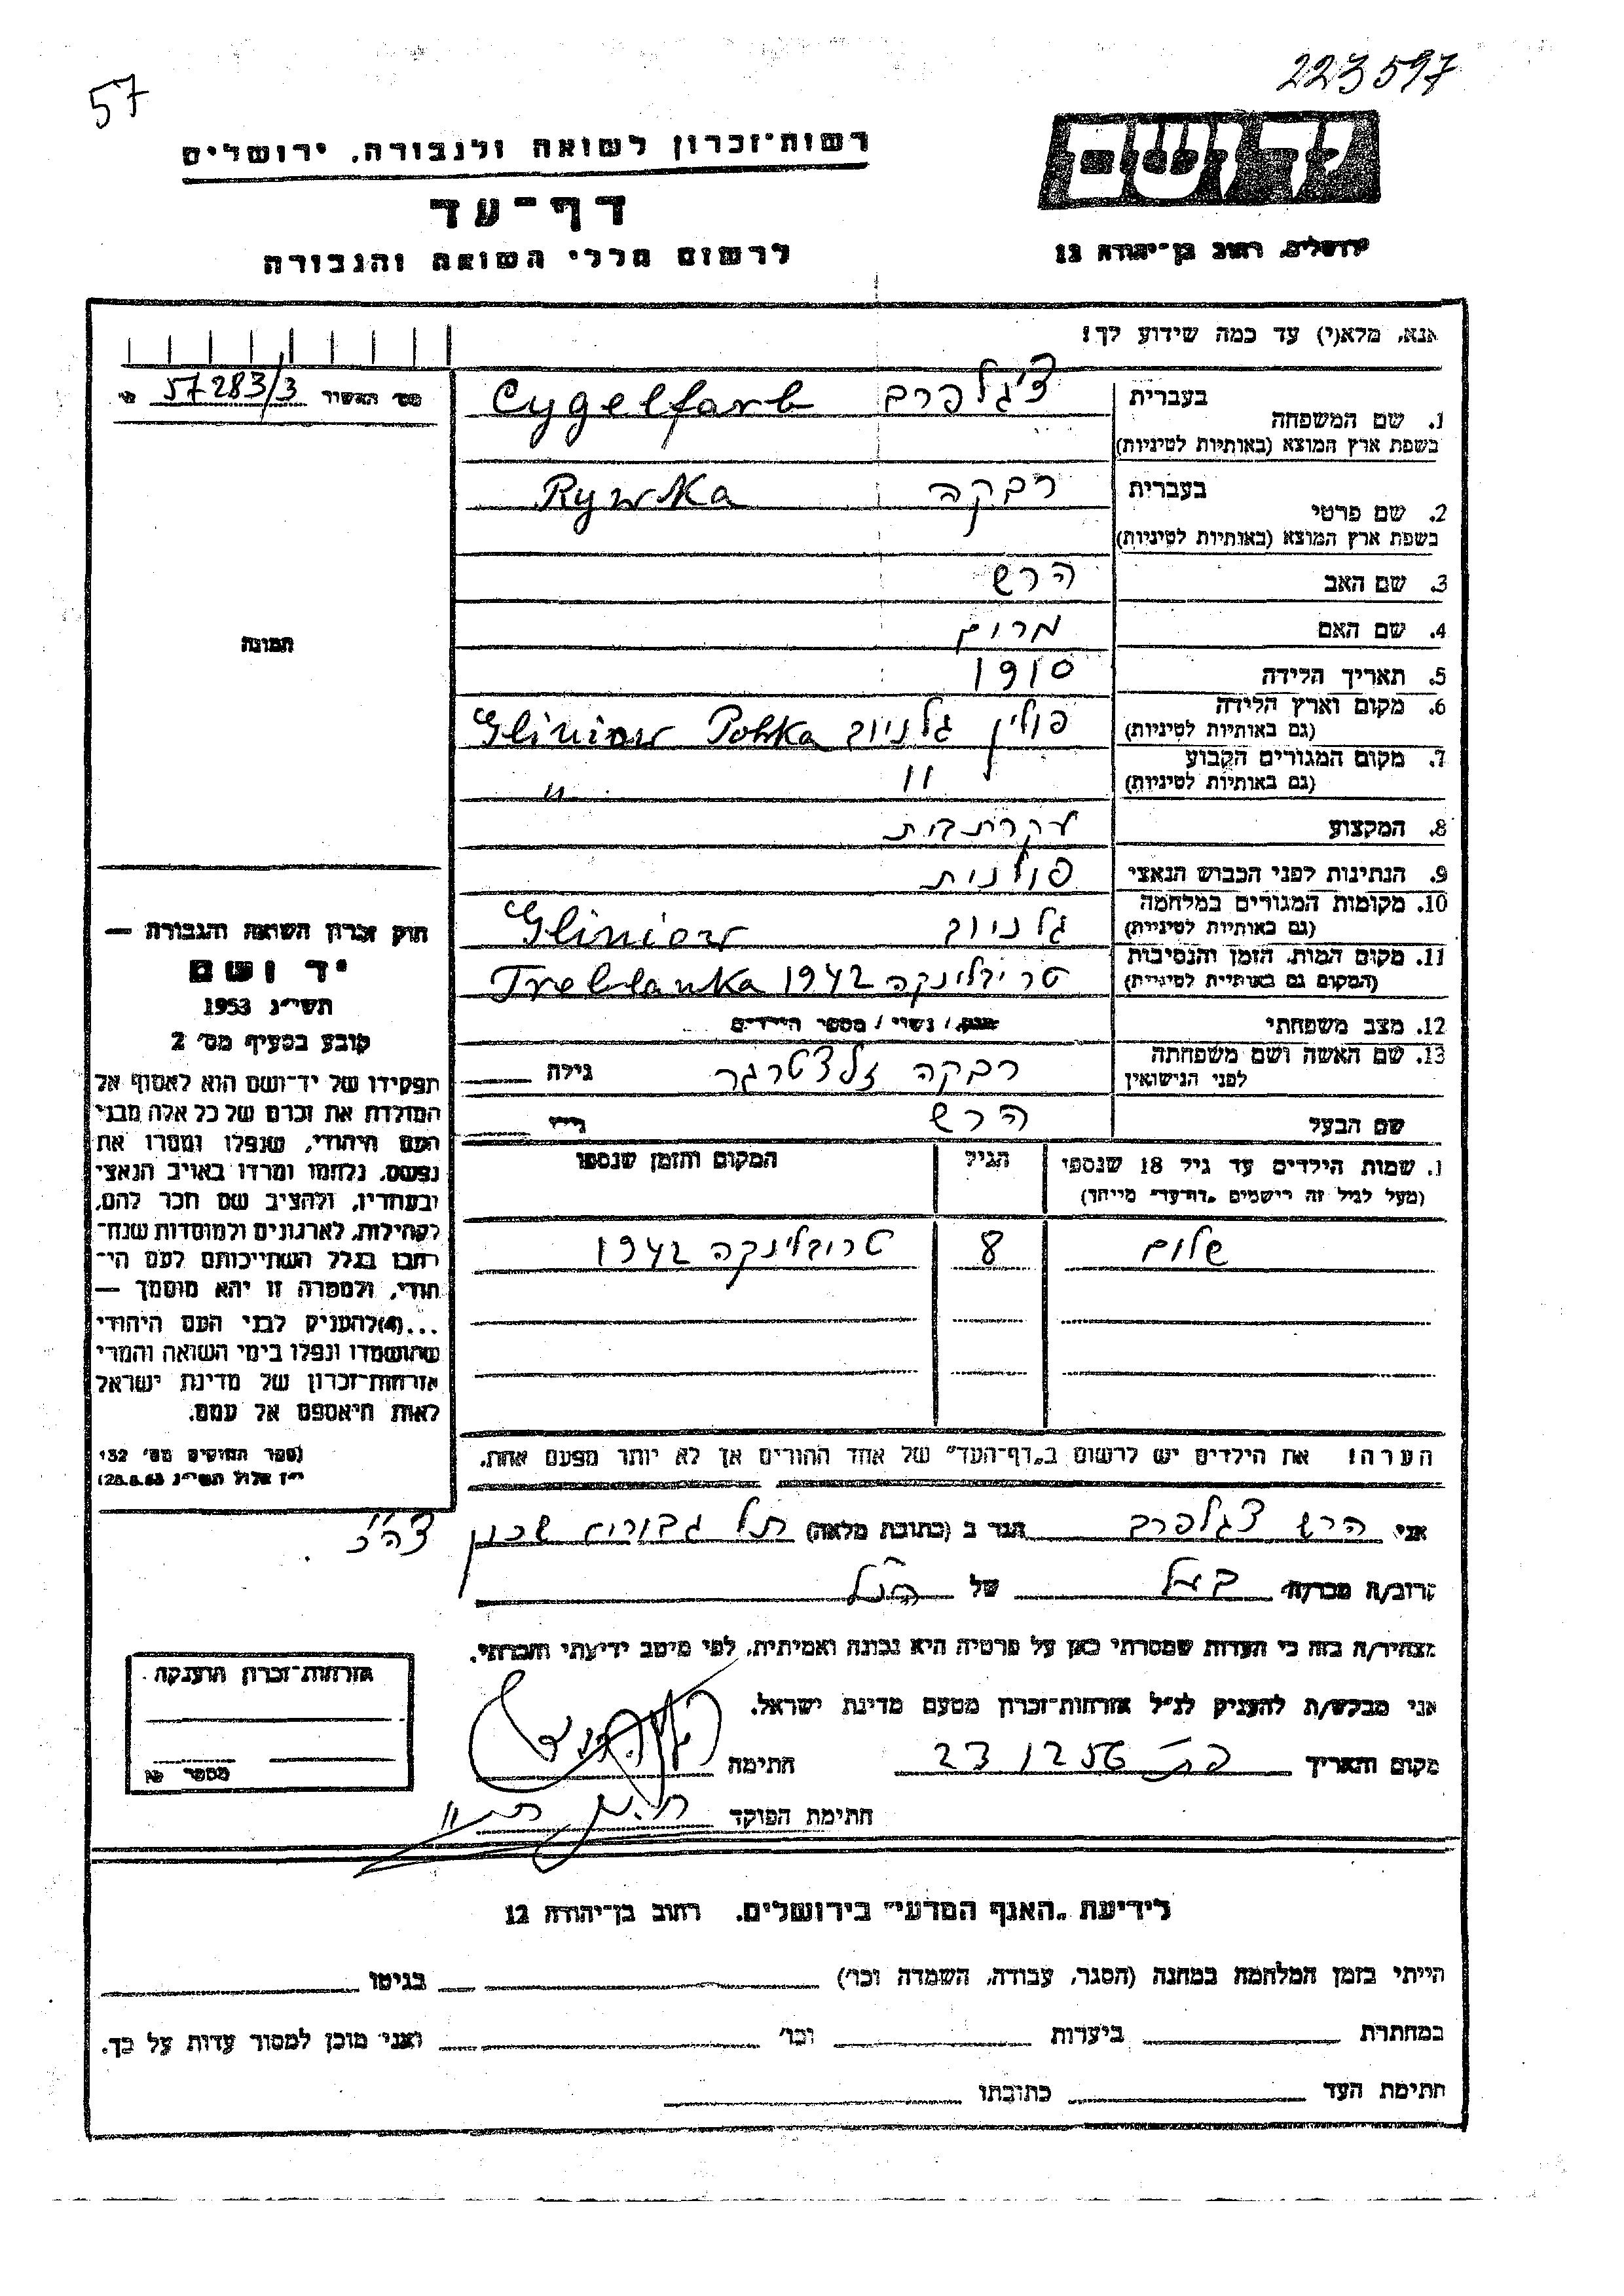 57
223597
רשות־זכרון לשואה ולגבורה, ירושלים
יד ושם
דף־עד
ירושלים, רחוב בן־יהודה 12
לרשום חללי השואה והגבורה
אנא, מלא(י) עד כמה שידוע לך!
מס' האשיר 57283/3
בעברית
1. שם המשפחה
צ'גלפרב Cygelfarb
בשפת ארץ המוצא (באותיות לטיניות)
בעברית
2. שם פרטי
רבקה Rywka
בשפת ארץ המוצא (באותיות לטיניות)
3. שם האב הרש
4. שם האם מרים
5. תאריך הלידה 1910
6. מקום וארץ הלידה
(גם באותיות לטיניות)
פולין גלניוב Gliniow Polska
7. מקום המגורים הקבוע
(גם באותיות לטיניות)
" "
8. המקצוע עקרת בית
9. הנתינות לפני הכבוש הנאצי פולנית
10. מקומות המגורים במלחמה
(גם באותיות לטיניות)
גלניוב Gliniow
11. מקום המות, הזמן והנסיבות
(המקום גם באותיות לטיניות)
טריבלינקה 1942 Treblanka
12. מצב משפחתי נשוי / מספר הילדים
13. שם האשה ושם משפחתה
לפני הנישואין
רבקה גילה
שם הבעל הרש
תמונה
חוק זכרון השואה והגבורה —
יד ושם
תשי"ג 1953
קובע בסעיף מס' 2
תפקידו של יד־ושם הוא לאסוף אל
המולדת את זכרם של כל אלה מבני
העם היהודי, שנפלו ומסרו את
נפשם, נלחמו ומרדו באויב הנאצי
ובעוזריו, ולהציב שם וזכר להם,
לקהילות, לארגונים ולמוסדות שנח־
רבו בגלל השתייכותם לעם הי־
הודי, ולמטרה זו יהא מוסמך —
...(4) להעניק לבני העם היהודי
שהושמדו ונפלו בימי השואה והמרי
אזרחות־זכרון של מדינת ישראל
לאות היאספם אל עמם.
(ספר החוקים מס' 132
י"ז אלול תשי"ג 28.8.53)
שמות הילדים עד גיל 18 שנספו הגיל המקום והזמן שנספו
(מעל לגיל זה רישמים „דף־עד" מיוחד)
שלום 8 טריבלינקה 1942
הערה! את הילדים יש לרשום ב„דף־העד" של אחד ההורים אך לא יותר מפעם אחת.
אני הרש צגלפרב הגר ב (כתובת מלאה) תל גבורים שכון
קרוב/ה מכר/ה בעל של הנ"ל
מצהיר/ה בזה כי העדות שמסרתי כאן על פרטיה היא נכונה ואמיתית, לפי מיטב ידיעתי והכרתי.
אני מבקש/ת להעניק לנ"ל אזרחות־זכרון מטעם מדינת ישראל.
מקום ותאריך 23 12 56 חתימה
חתימת הפוקד
אזרחות־זכרון הוענקה
מספר
לידיעת „האגף המדעי" בירושלים, רחוב בן־יהודה 12
הייתי בזמן המלחמה במחנה (הסגר, עבודה, השמדה וכו') בגיטו
במחתרת ביערות וכו' ואני מוכן למסור עדות על כך.
חתימת העד כתובתו